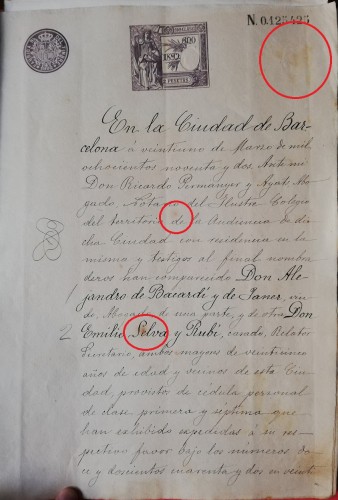 N. 0.125.425
1892
2 PESETAS
En la Ciudad de Bar-
celona á veintiuno de Marzo de mil
ochocientos noventa y dos. Ante mi
Don Ricardo Permanyer y Ayats Abo
gado, Notario del Ilustre Colegio
del territorio de la Audiencia de di-
cha Ciudad con residencia en la
misma y testigos al final nombra
deros han comparecido Don Ale-
1 jandro de Bacardí y de Janer,
Abogado de una parte, y de otra Don
2 Emilio Selva y Rubí, casado, Relator
Secretario, ambos mayores de veinticinco
años de edad y vecinos de esta Ciu
dad, provistos de cédula personal
de clase primera y séptima que
han exhibido expedidas á su res-
pectivo favor bajo los números do
ce y doscientos cuarenta y dos en veinti